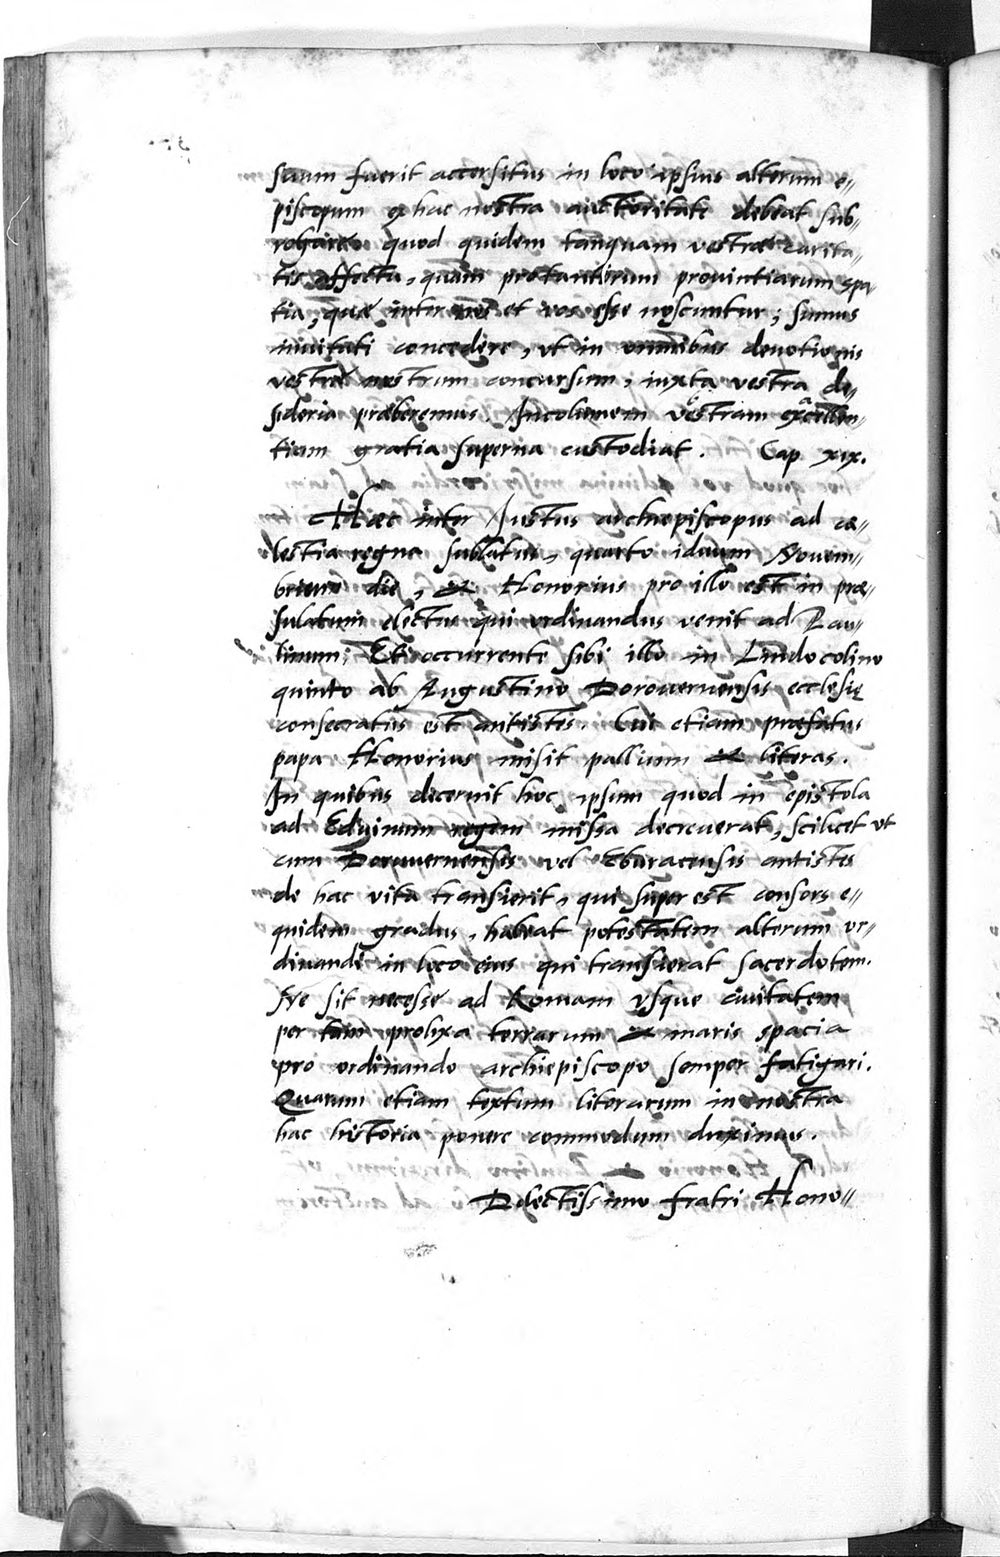 suum fuerit accersitus in loco ipsius alterum e-
piscopum ex hac nostra auctoritate debeat sub-
rogare quod quidem tanquam vestræ carita-
tis affectu, quam pro tantorum provintiarum spa
tia, quæ inter nos et vos esse noscuntur, sumus
invitati concedere, vt in omnibus devotionis
vestræ nostrum concursum, iuxta vestra de-
sideria præberemus. Incolumem vestram excellen-
tiam gratia superna custodiat. Cap xix.
Hæc inter Iustus archiepiscopus ad cæ-
lestia regna sublatus, quarto iduum Novem-
brium die, & Honorius pro illo est in præ-
sulatum electus qui ordinandus venit ad Pau-
linum; Et occurrente sibi illo in Lindocolino
quinto ab Augustino Dorovernensis ecclesię
consecratus est antistis. Cui etiam præfatus
papa Honorius misit pallium & literas.
In quibus decernit hoc ipsum quod in epistola
ad Edvinum regem missa decreverat, scilicet vt
cum Doruvernensis vel Eburacensis antistes
de hac vita transierit, qui super est consors e-
quidem gradus, habeat potestatem alterum or-
dinandi in loco eius qui transierat sacerdotem.
Ne sit necesse ad Romam vsque civitatem
per tam prolixa terrarum & maris spacia
pro ordinando archiepiscopo semper fatigari.
Quarum etiam textum literarum in nostra
hac historia ponere commodum duximus.
Dilectissimo fratri Hono-